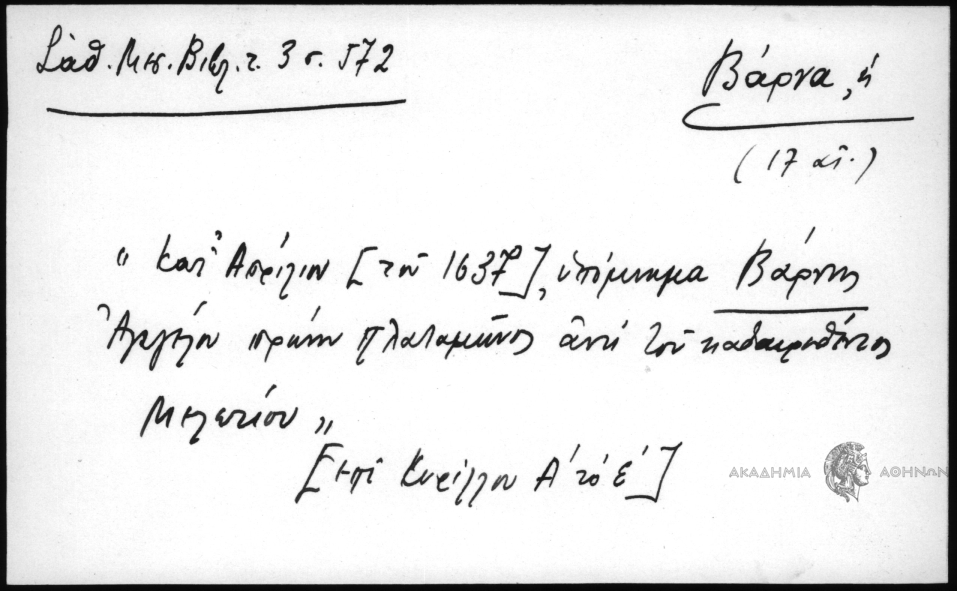 Σάθ. Μεσ. Βιβλ. τ. 3 σ. 572
Βάρνα, ἡ
(17 αἰ.)
" Κατ' Ἀπρίλιον [τοῦ 1637], ὑπόμνημα Βάρνης
Ἀγγέλου πρώην Πλαταμῶνος ἀντὶ τοῦ καθαιρεθέντος
Μελετίου "
[ἐπὶ Κυρίλλου Α' τὸ ε']
ΑΚΑΔΗΜΙΑ ΑΘΗΝΩΝ